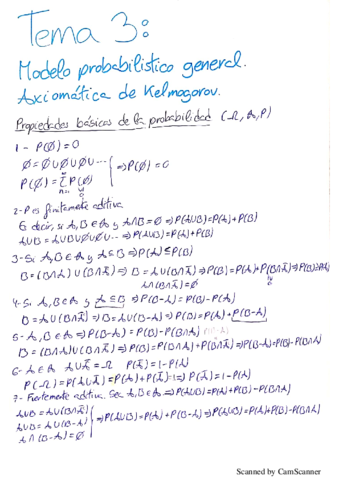 Tema 3:
Modelo probabilístico general.
Axiomática de Kolmogorov.
Propiedades básicas de la probabilidad (Ω, A, P)
1- P(∅)=0
∅=∅∪∅∪∅∪... ⇒ P(∅)=0
P(∅)=∑P(∅)
2-P es finitamente aditiva
Es decir, si A,B∈A y A∩B=∅ ⇒ P(A∪B)=P(A)+P(B)
A∪B=A∪B∪∅∪∅∪... ⇒ P(A∪B)=P(A)+P(B)
3-Si A,B∈A y A⊆B ⇒ P(A)≤P(B)
B=(B∩A)∪(B∩Ā) ⇒ B=A∪(B∩Ā) ⇒ P(B)=P(A)+P(B∩Ā) ⇒ P(B)≥P(A)
A∩(B∩Ā)=∅
4-Si A,B∈A y A⊆B ⇒ P(B-A)=P(B)-P(A)
B=A∪(B∩Ā) ⇒ B=A∪(B-A) ⇒ P(B)=P(A)+P(B-A)
5-A,B∈A ⇒ P(B-A)=P(B)-P(B∩A)
B=(B∩A)∪(B∩Ā) ⇒ P(B)=P(B∩A)+P(B∩Ā) ⇒ P(B-A)=P(B)-P(B∩A)
6-A∈A A∪Ā=Ω P(Ā)=1-P(A)
P(Ω)=P(A∪Ā)=P(A)+P(Ā)=1 ⇒ P(Ā)=1-P(A)
7- Fuertemente aditiva. Sea A,B∈A ⇒ P(A∪B)=P(A)+P(B)-P(B∩A)
A∪B=A∪(B∩Ā)
A∪B=A∪(B-A) ⇒ P(A∪B)=P(A)+P(B-A) ⇒ P(A∪B)=P(A)+P(B)-P(B∩A)
A∩(B-A)=∅
Scanned by CamScanner